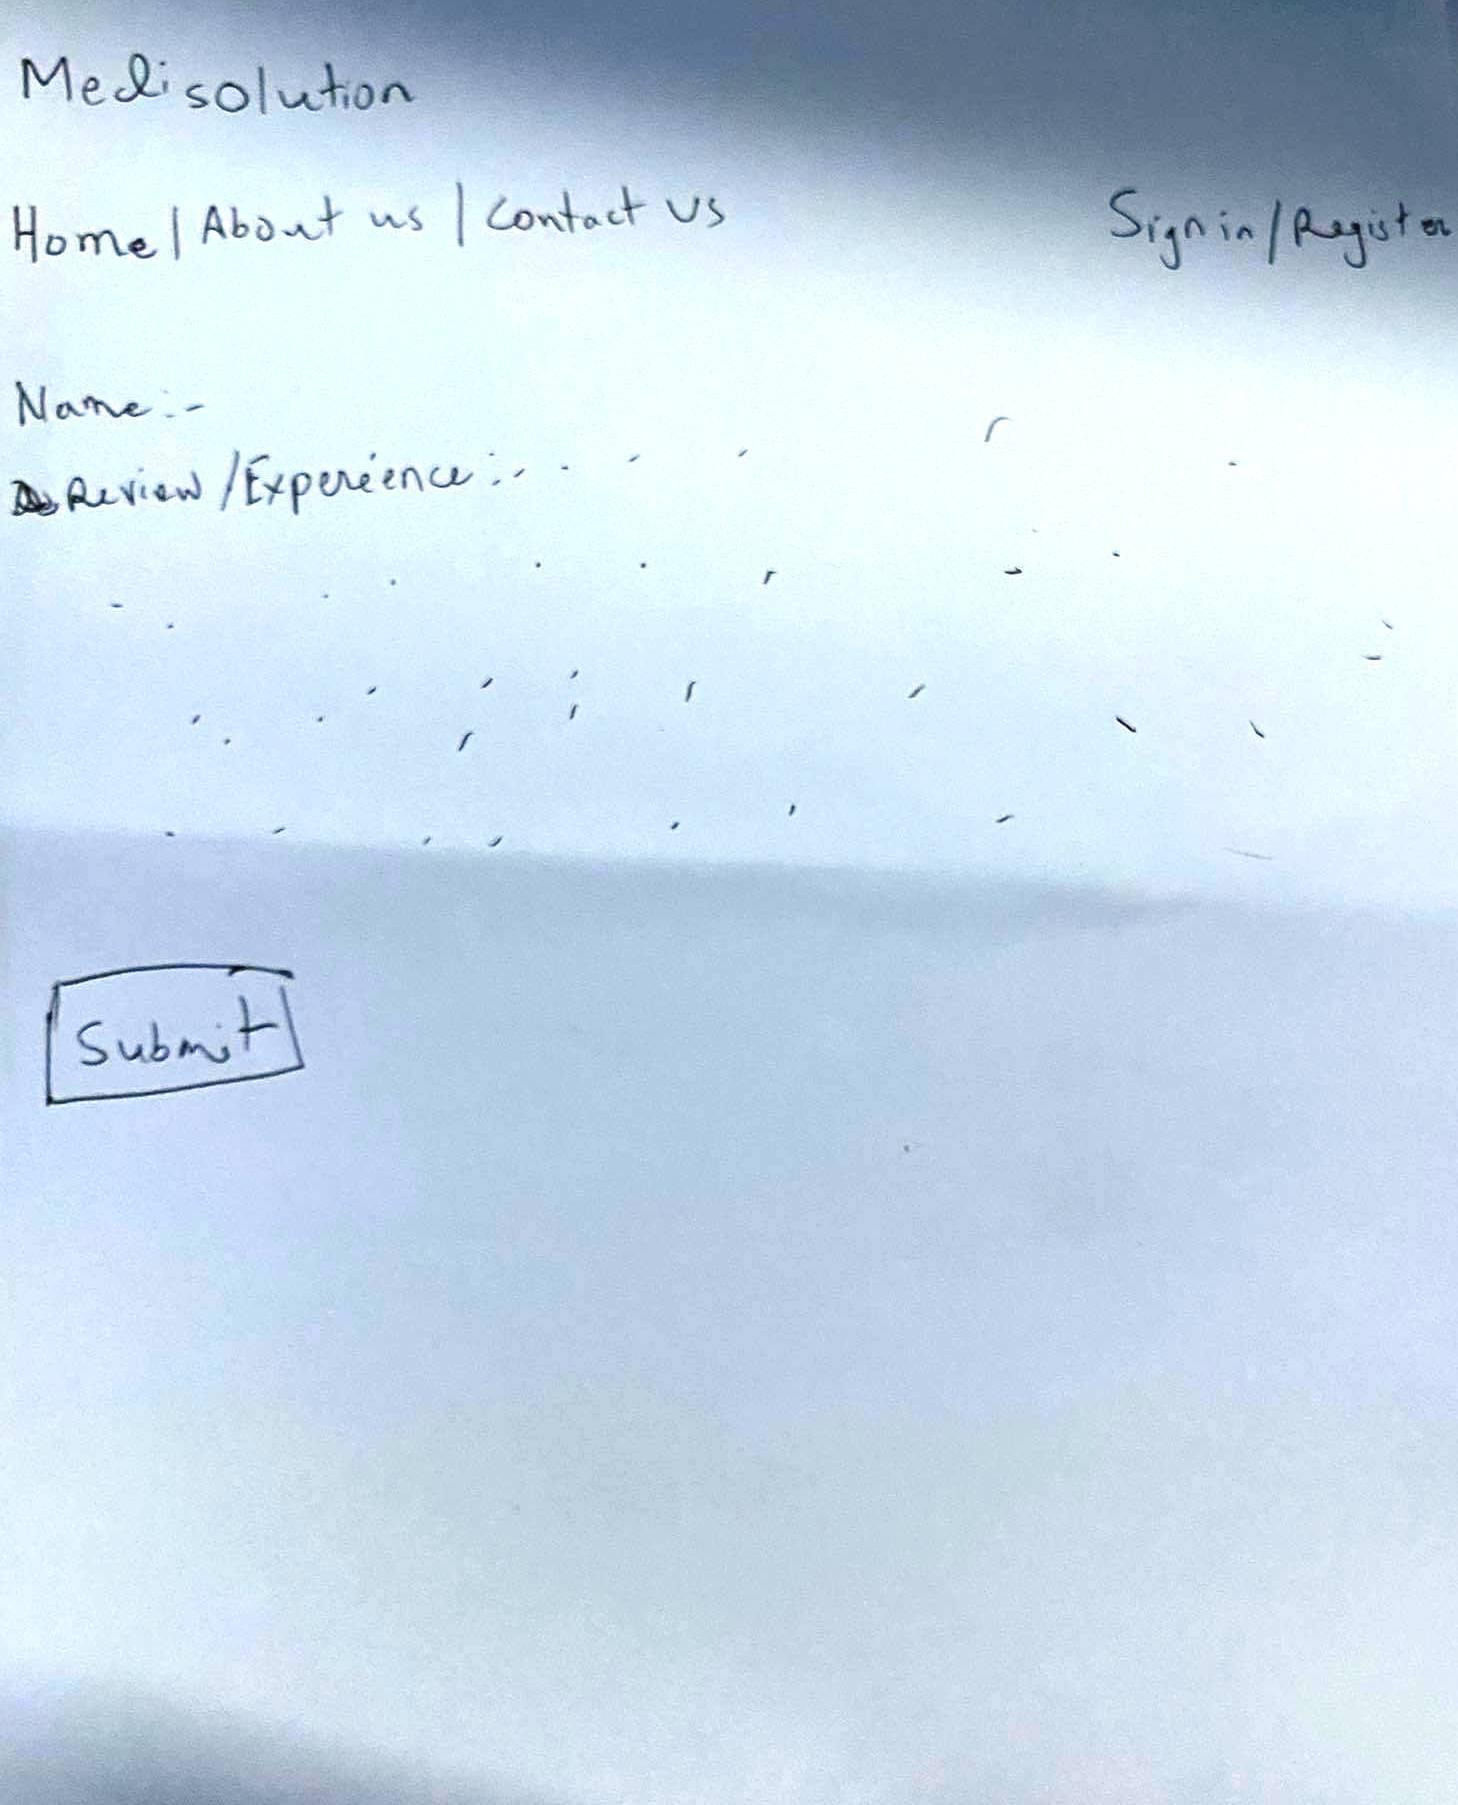 Medisolution
Home | About us | Contact us Sign in / Register
Name :-
Review / Expereience :-
Submit